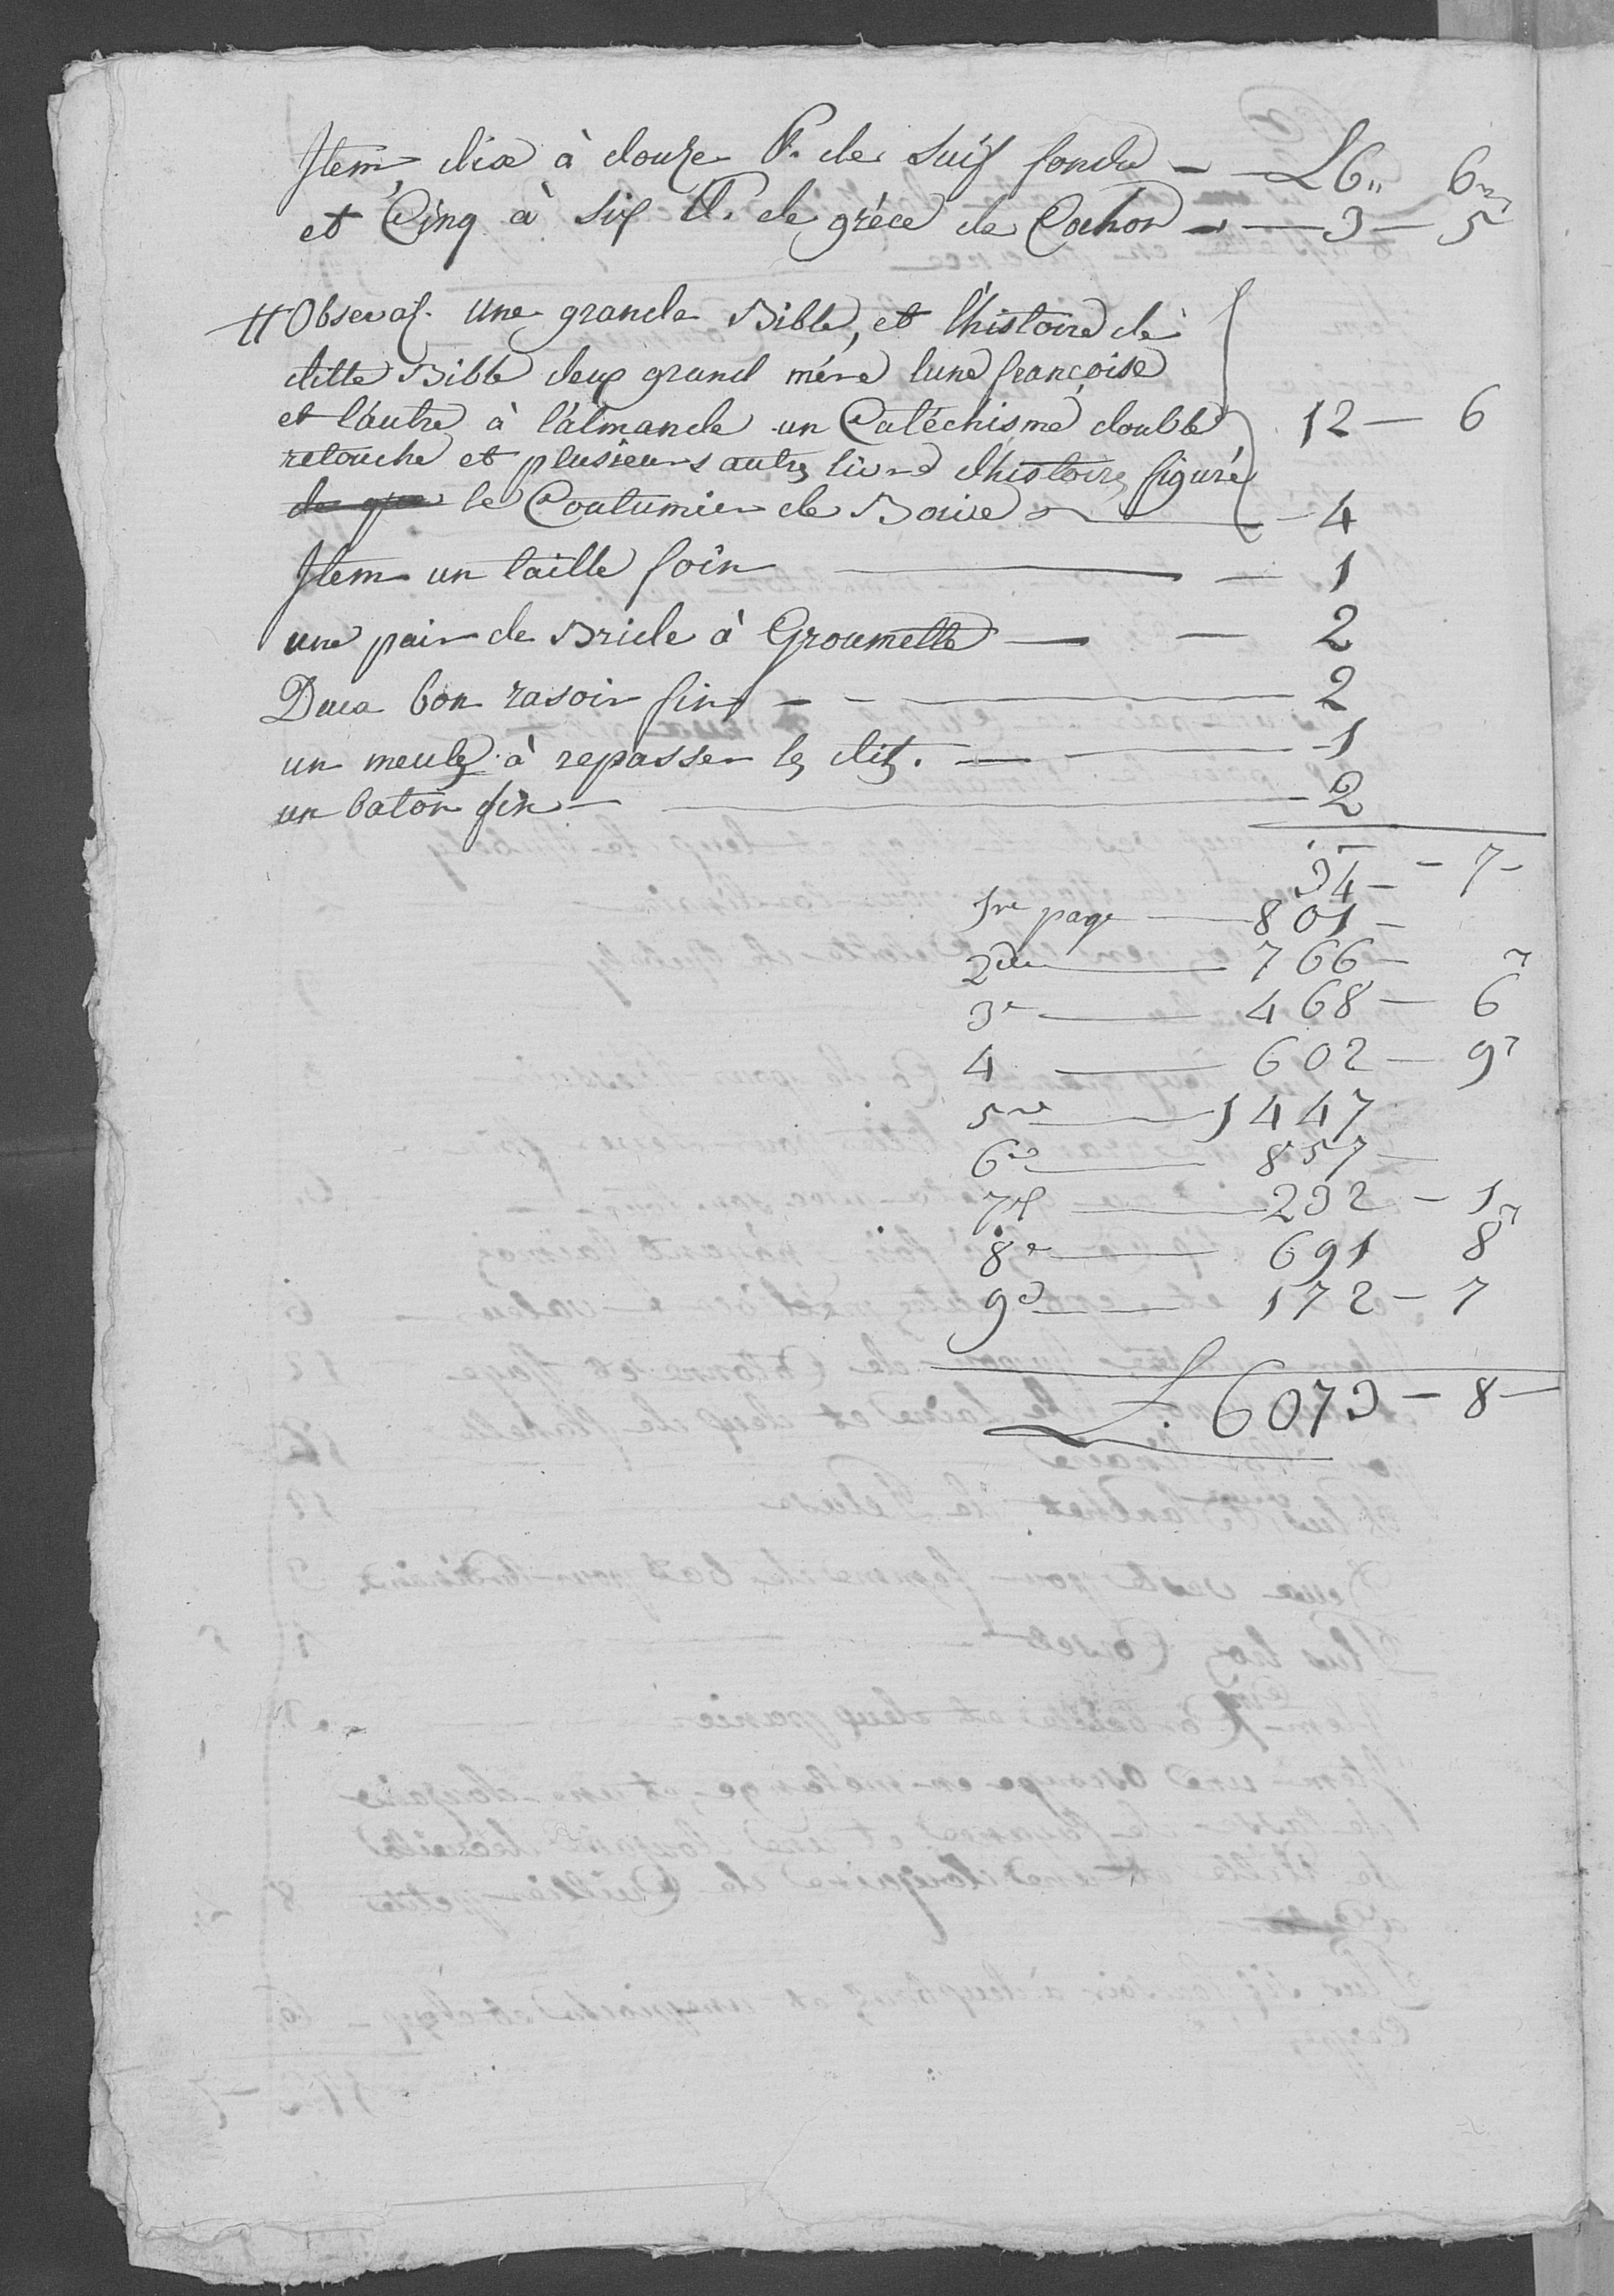 Item, dix à douze ℔. de suif fondu — L 6„ 6„
et Cinq à six ℔. de gréce de Cochon — 3 — 5
# Observaõ. Une grande Bible, et l'histoire de
ditte Bible deux grand mére lune françoise
et l'autre à l'almande un Catéchisme double 12 — 6
retouche et plusieurs autres livre d'histoire figuré
le Coutumier de Boive — 4
Item un taille foin — 1
une pair de Bride à Groumette — 2
Deux bon rasoir fins — 2
un meule à repasser les dits. — 1
un baton fin — 2
34 — 7 —
1re page — 801 —
2de — 766 —
3e — 468 — 6
4 — 602 — 9
5me — 1447
6e — 857 —
7e — 232 — 1
8e — 691 8
9e — 172 — 7
L. 6073 — 8 —